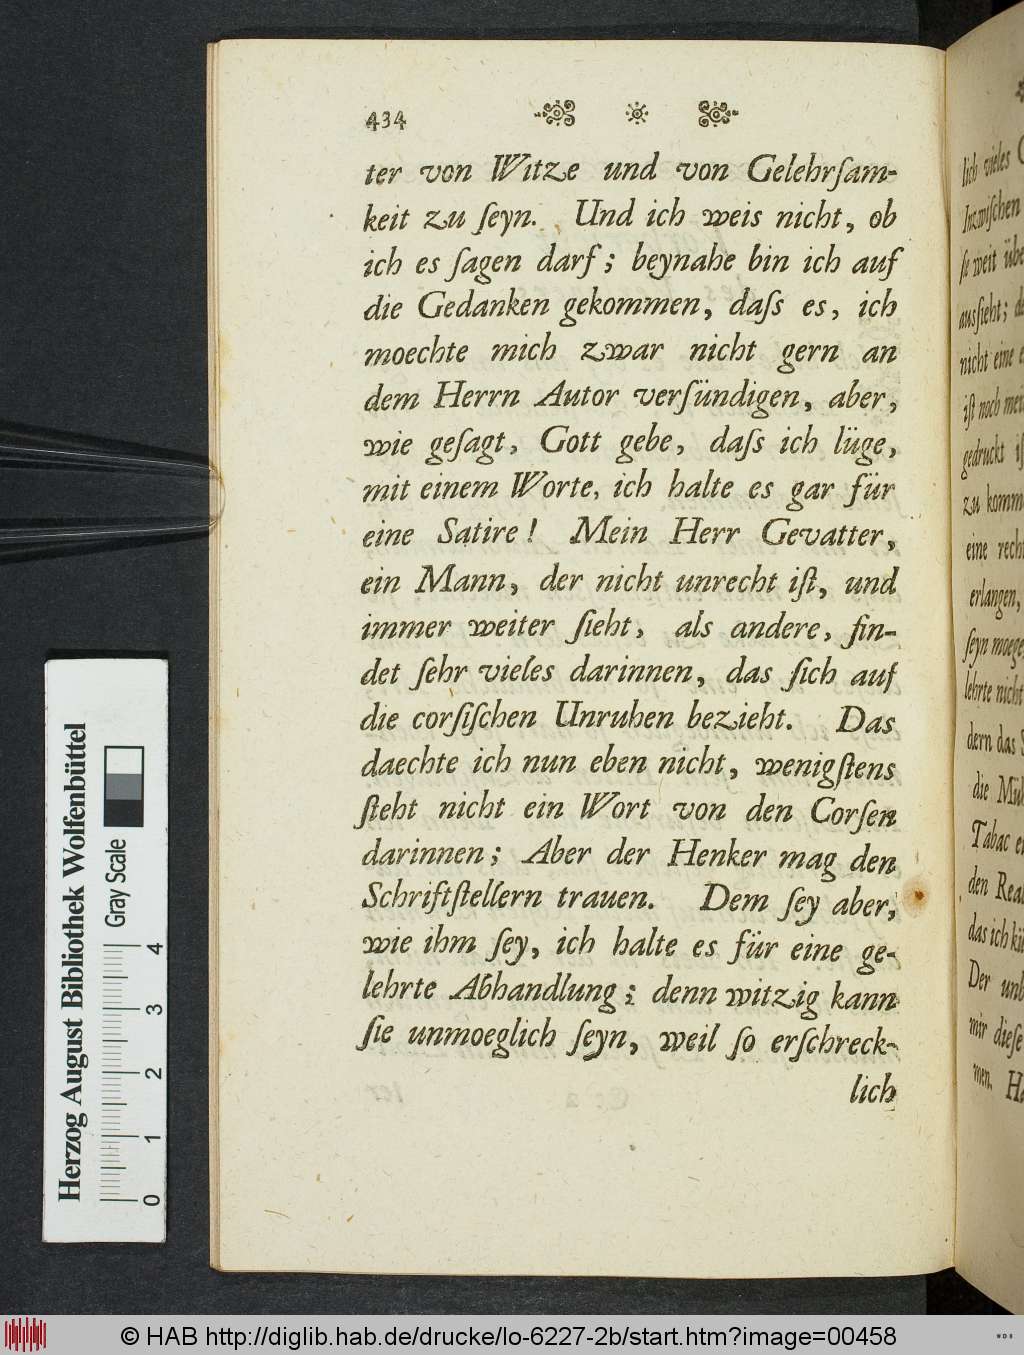 434
ter von Witze und von Gelehrſam-
keit zu ſeyn. Und ich weis nicht, ob
ich es ſagen darf; beynahe bin ich auf
die Gedanken gekommen, daſs es, ich
moechte mich zwar nicht gern an
dem Herrn Autor verſündigen, aber,
wie geſagt, Gott gebe, daſs ich lüge,
mit einem Worte, ich halte es gar für
eine Satire! Mein Herr Gevatter,
ein Mann, der nicht unrecht iſt, und
immer weiter ſieht, als andere, fin-
det ſehr vieles darinnen, das ſich auf
die corſiſchen Unruhen bezieht. Das
daechte ich nun eben nicht, wenigſtens
ſteht nicht ein Wort von den Corſen
darinnen; Aber der Henker mag den
Schriftſtellern trauen. Dem ſey aber,
wie ihm ſey, ich halte es für eine ge-
lehrte Abhandlung; denn witzig kann
ſie unmoeglich ſeyn, weil ſo erſchreck-
lich
lich vieles
Inzwiſchen
ſe weit
ausſieht;
nicht eine
iſt noch
gedruckt
zu
eine
erlangen,
ſeyn
lehrte nicht
dern das
die
Tabac
den
das ich
Der
mir dieſe
men.
Herzog August Bibliothek Wolfenbüttel
Gray Scale
0 1 2 3 4
© HAB http://diglib.hab.de/drucke/lo-6227-2b/start.htm?image=00458